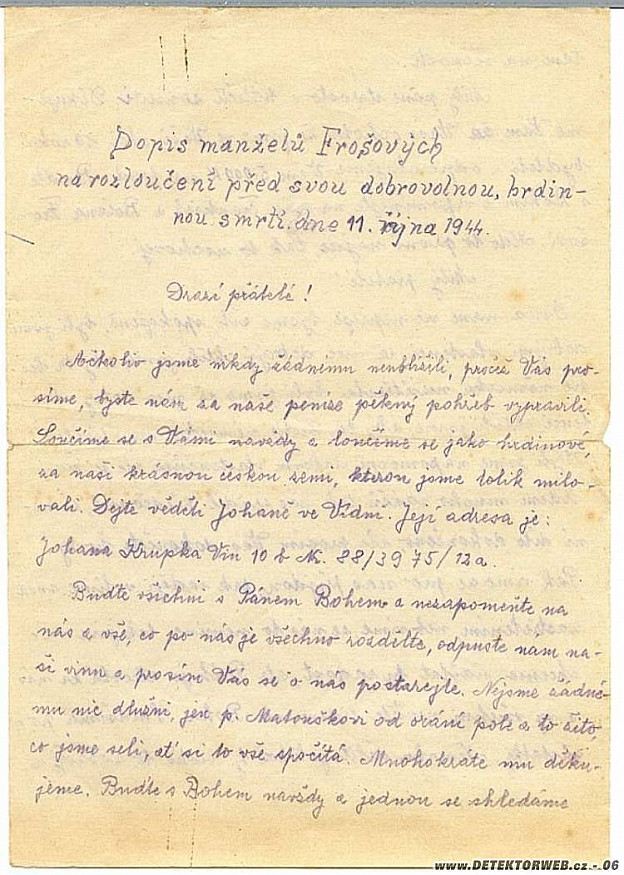 Dopis manželů Frošových
na rozloučení před svou dobrovolnou, hrdin-
nou smrtí. dne 11. října 1944.
Drazí přátelé!
Ačkoliv jsme nikdy žádnému neublížili, přece Vás pro-
síme, byste nám za naše peníze pěkný pohřeb vypravili.
Loučíme se s Vámi navždy a loučíme se jako hrdinové,
za naši krásnou českou zemi, kterou jsme tolik milo-
vali. Dejte věděti Johaně ve Vídni. Její adresa je:
Johana Krupka Vin 10 b N. 88/39 75/12a.
Buďte všichni s Pánem Bohem a nezapomeňte na
nás a vše, co po nás je všechno rozdělte, odpusťte nam na-
ši vinu a prosím Vás se o nás postarejte. Nejsme žádné-
mu nic dlužni, jen p. Matouškovi od orání pole a to žito,
co jsme seli, ať si to vše spočítá. Mnohokráte mu děku-
jeme. Buďte s Bohem navždy a jednou se shledáme
www.DETEKTORWEB.cz - 06